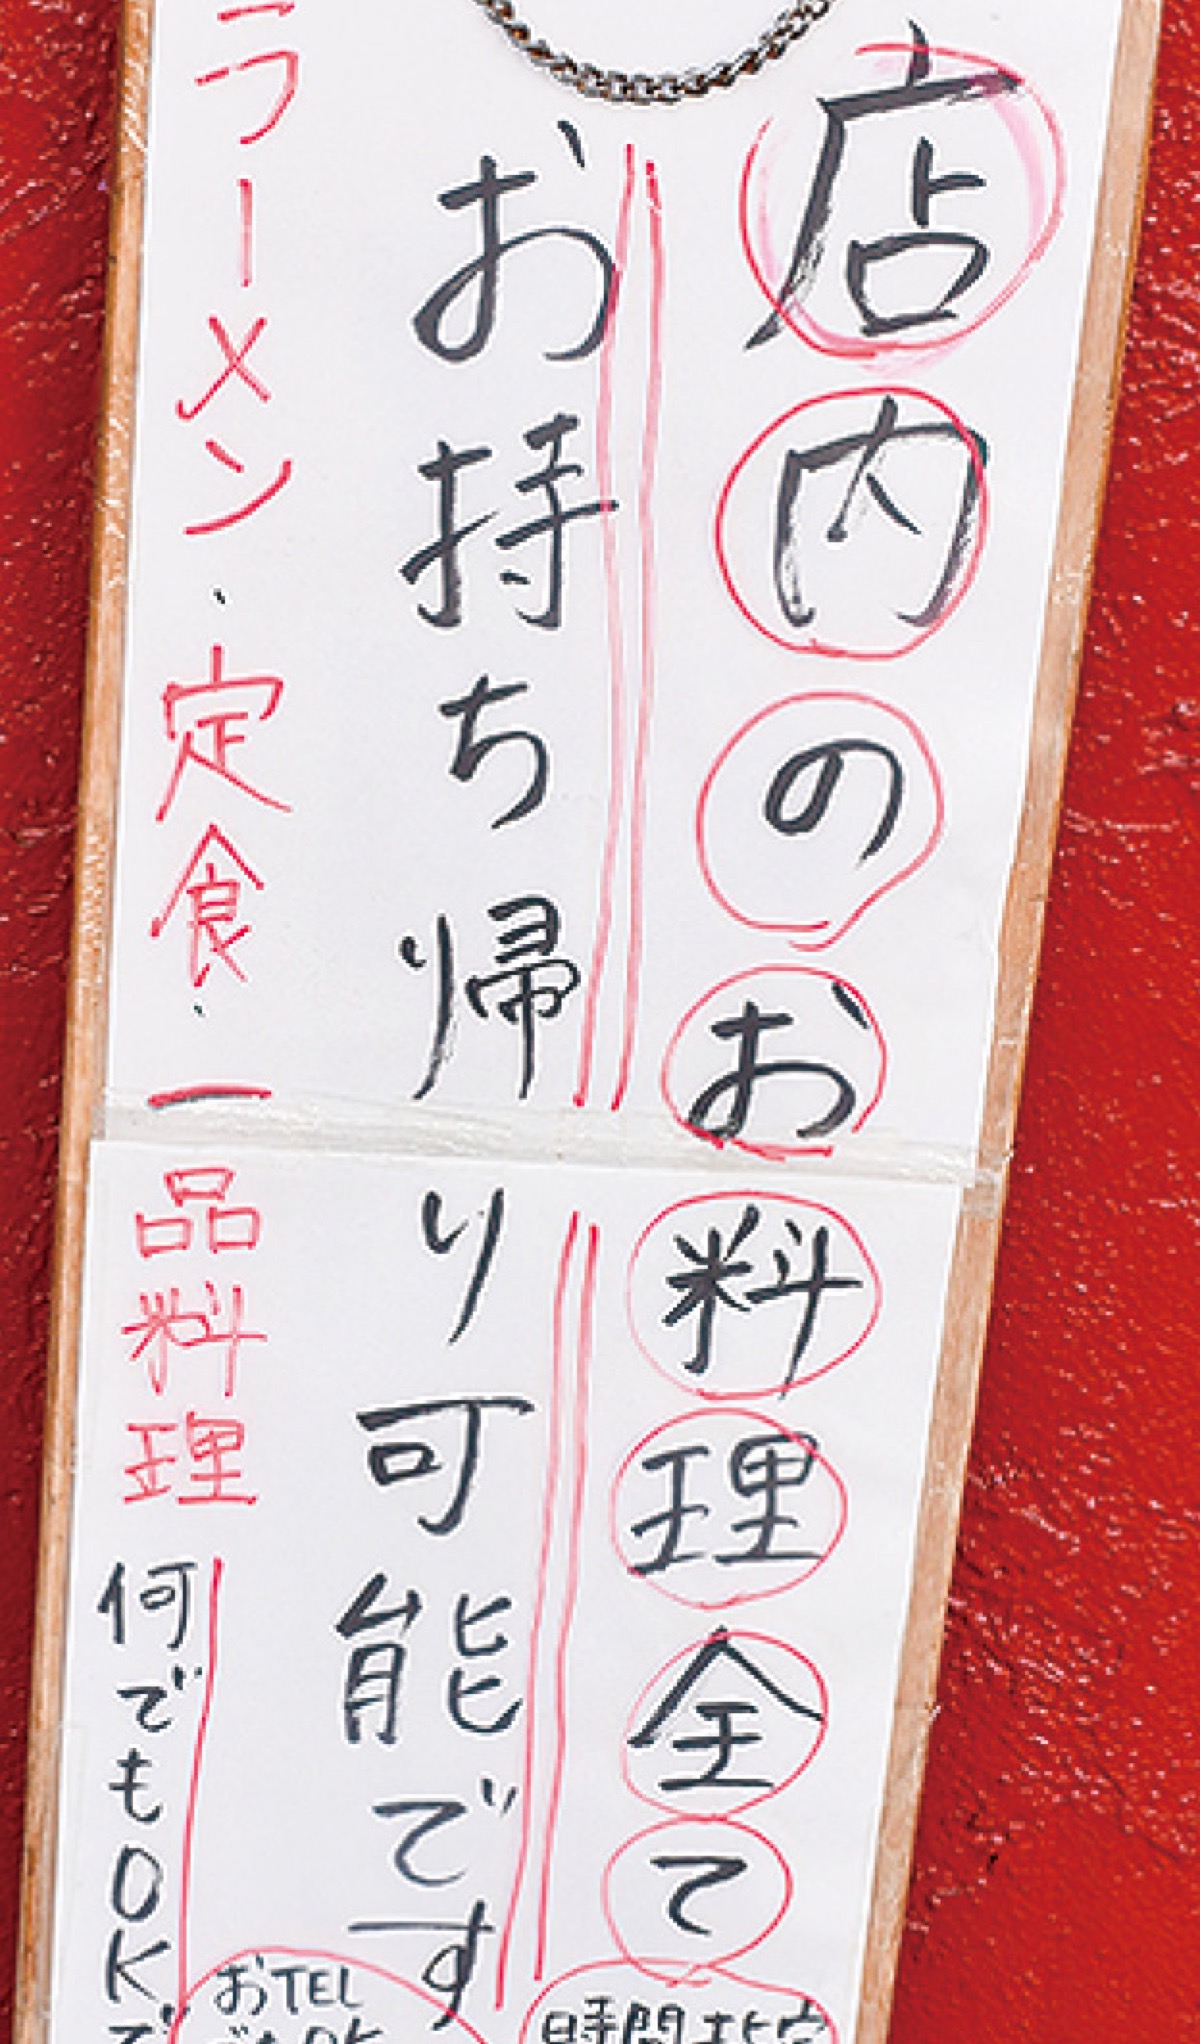 店内のお料理全て
お持ち帰り可能です
ラーメン・定食・一品料理
何でもOKで
時間指定
おTEL